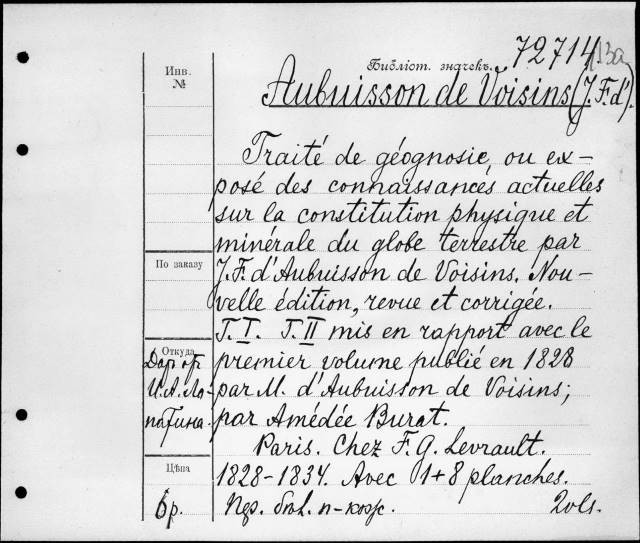 72714
Инв.
№
Библіот. значекъ.
Aubuisson de Voisins (J. F. d').
Traité de géognosie, ou ex-
posé des connaissances actuelles
sur la constitution physique et
minérale du globe terrestre par
По заказу
J. F. d'Aubuisson de Voisins. Nou-
velle édition, revue et corrigée.
T. I. T. II mis en rapport avec le
Откуда
Дар от
premier volume publié en 1828
И. А. Ло-
par M. d'Aubuisson de Voisins;
патина.
par Amédée Burat.
Paris. Chez F. G. Levrault.
Цѣна
1828-1834. Avec 1+8 planches.
бр.
2 vls.